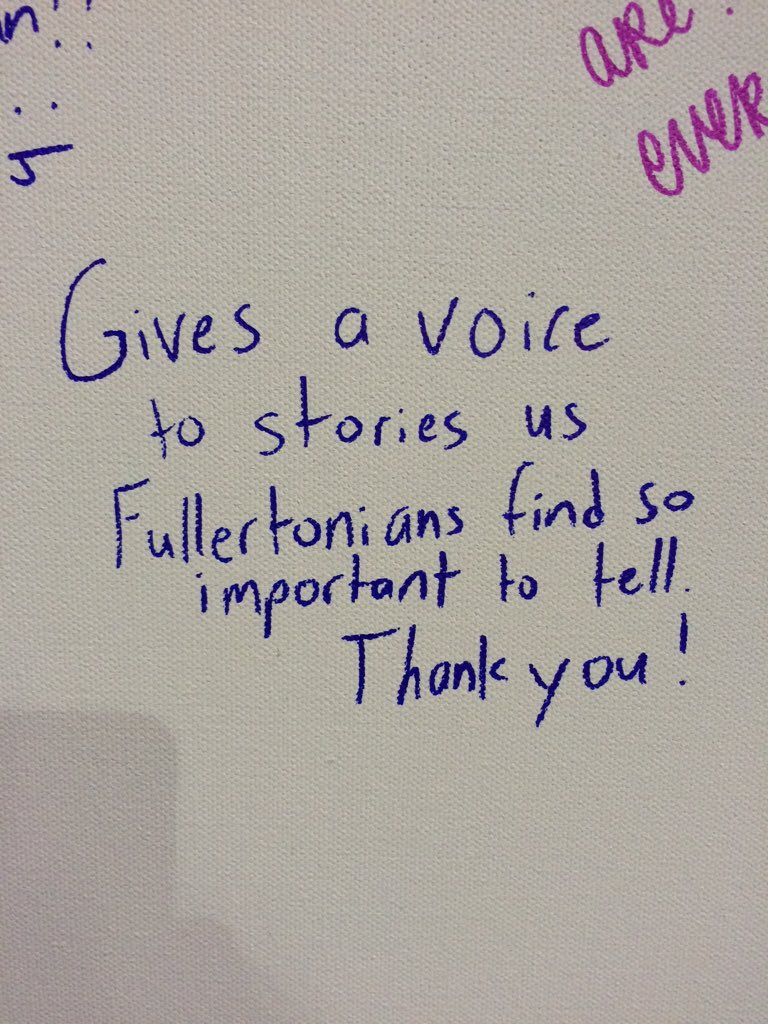 are.
ever
Gives a voice
to stories us
Fullertonians find so
important to tell.
Thank you!